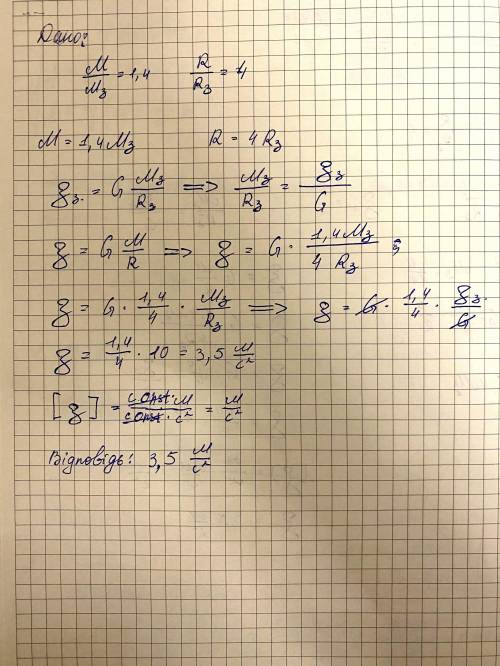 Дано:
M/Mз = 1,4 R/Rз = 4
M = 1,4 Mз R = 4 Rз
gз. = G Mз/Rз => Mз/Rз = gз/G
g = G M/R => g = G · 1,4Mз/4 Rз ;
g = G · 1,4/4 · Mз/Rз => g = G · 1,4/4 · gз./G
g = 1,4/4 · 10 = 3,5 м/с²
[g] = const·м/const·с² = м/с²
Відповідь: 3,5 м/с²